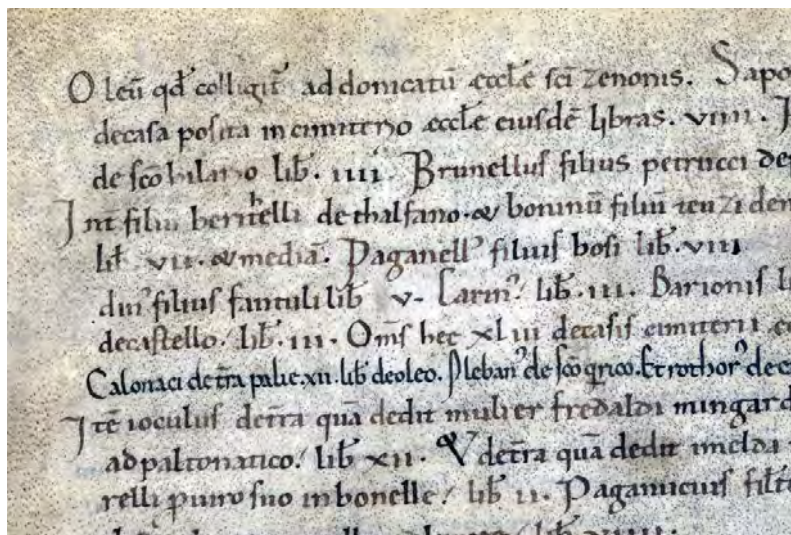 Oleū qd̄ colligit̄ ad donicatū eccłe sci zenonis. Sapo
decasa posita in cimiterio eccłe eiusdē libras. viiii.
de sc̄o hilario lib̄. iiii. Brunellus filius petrucci de
Int̄ filiu bernͪelli de thalfano. & boninū filiu teuzi de
lib̄ vii. & mediā. Paganellꝰ filius bosi lib̄. viii
filius fantuli lib̄ v. Carmꝰ. lib̄. iii. Barionis
decastello. lib̄. iii. Om̄s hec xliii decasis cimiterii
Calonaci de tr̄a palie. xii. lib̄ deoleo. Plebanꝰ de sc̄o qrico. Et rothorꝰ de
Itē ioculus detr̄a quā dedit mulier fredaldi mingard
ad paltonatico. lib̄ xii. & detr̄a quā dedit imelda
relli puiro suo in bonelle. lib̄ ii. Paganucius